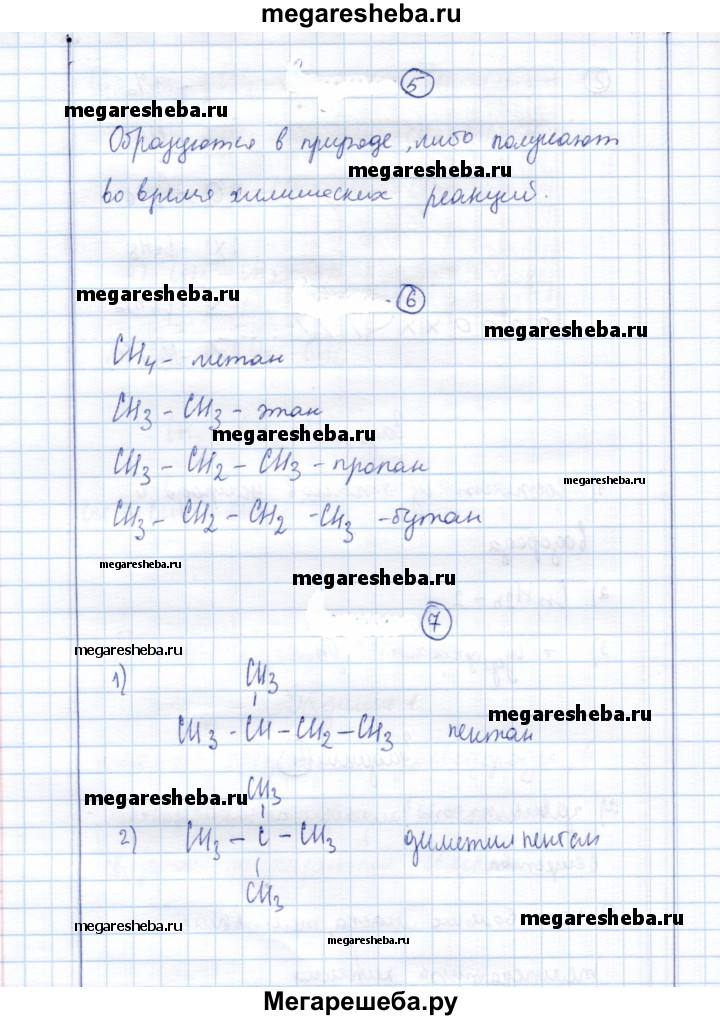 megaresheba.ru
5
megaresheba.ru
Образуются в природе, либо получают
megaresheba.ru
во время химических реакций.
megaresheba.ru
6
megaresheba.ru
CH4 - метан
CH3 - CH3 - этан
megaresheba.ru
CH3 - CH2 - CH3 - пропан
megaresheba.ru
CH3 - CH2 - CH2 - CH3 - бутан
megaresheba.ru
megaresheba.ru
7
megaresheba.ru
1) CH3
megaresheba.ru
CH3 - CH - CH2 - CH3 пентан
CH3
megaresheba.ru
2) CH3 - C - CH3 диметилпентан
CH3
megaresheba.ru
megaresheba.ru
megaresheba.ru
Мегарешеба.ру